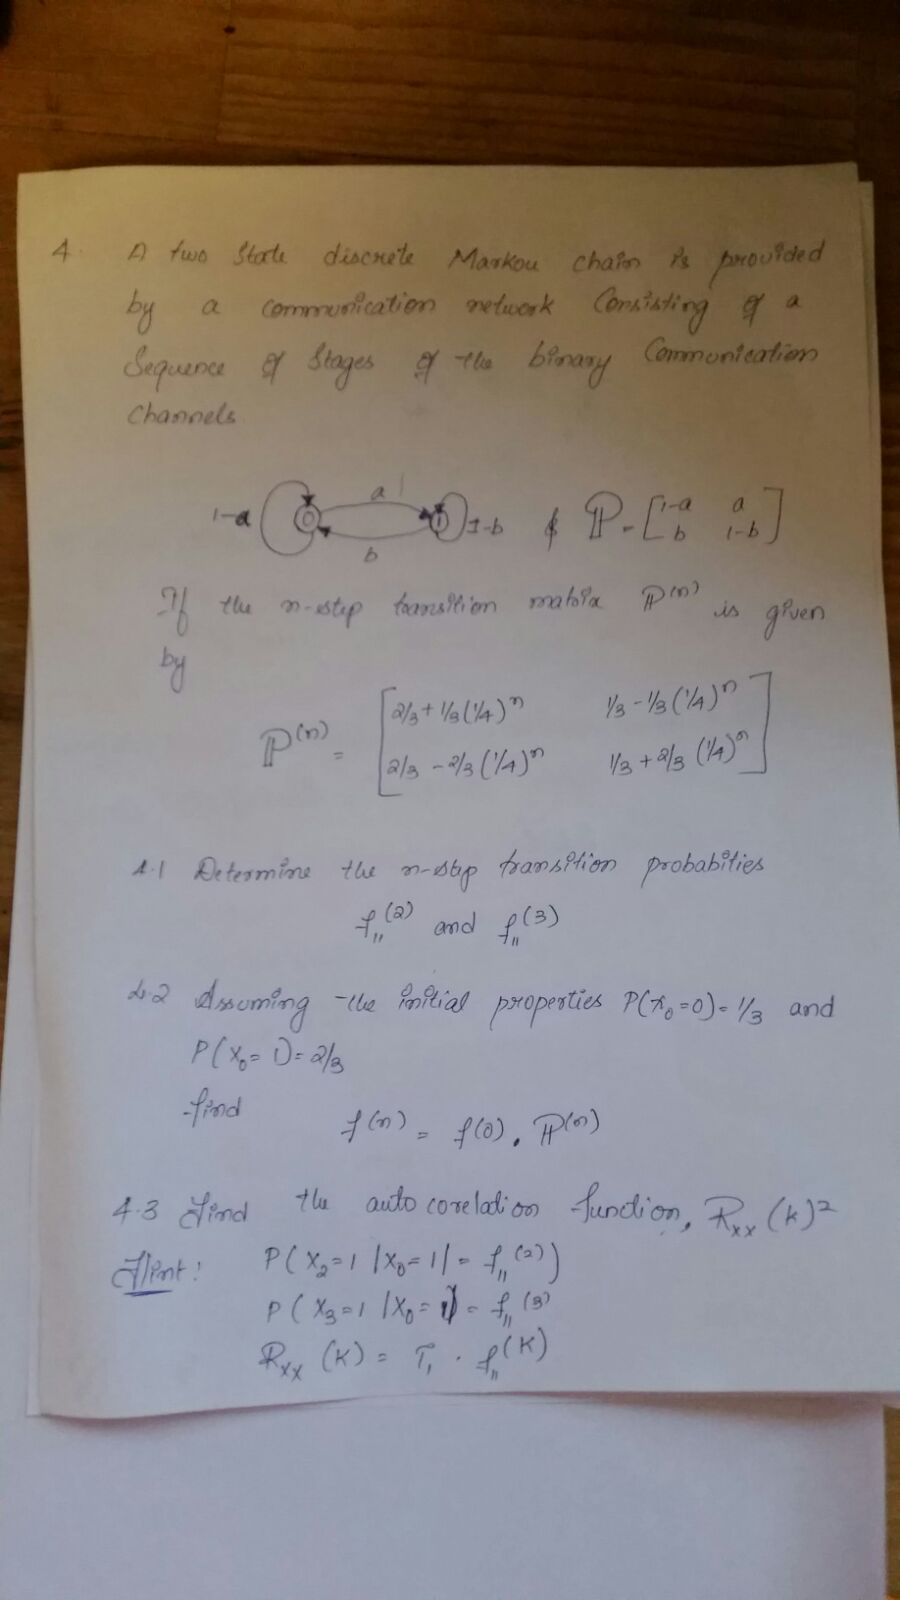 4. A two state discrete Markov chain is provided
by a communication network Consisting of a
Sequence of stages of the binary Communication
Channels.
1-a 0 a 1 1-b & ℙ = [1-a a
b b 1-b]
If the n-step transition matrix ℙ^(n) is given
by
ℙ^(n) = [2/3 + 1/3 (1/4)^n 1/3 - 1/3 (1/4)^n
2/3 - 2/3 (1/4)^n 1/3 + 2/3 (1/4)^n]
4.1 Determine the n-step transition probabities
f₁₁^(2) and f₁₁^(3)
4.2 Assuming the initial properties P(x₀=0) = 1/3 and
P(x₀=1) = 2/3
find
f^(n) = f(0) . ℙ^(n)
4.3 Find the auto corelation function, Rxx (k)?
Hint: P(X₂=1 | X₀=1| = f₁₁^(2))
P(X₃=1 | X₀=1) = f₁₁^(3)
Rxx (k) = T₁ . f₁₁^(k)